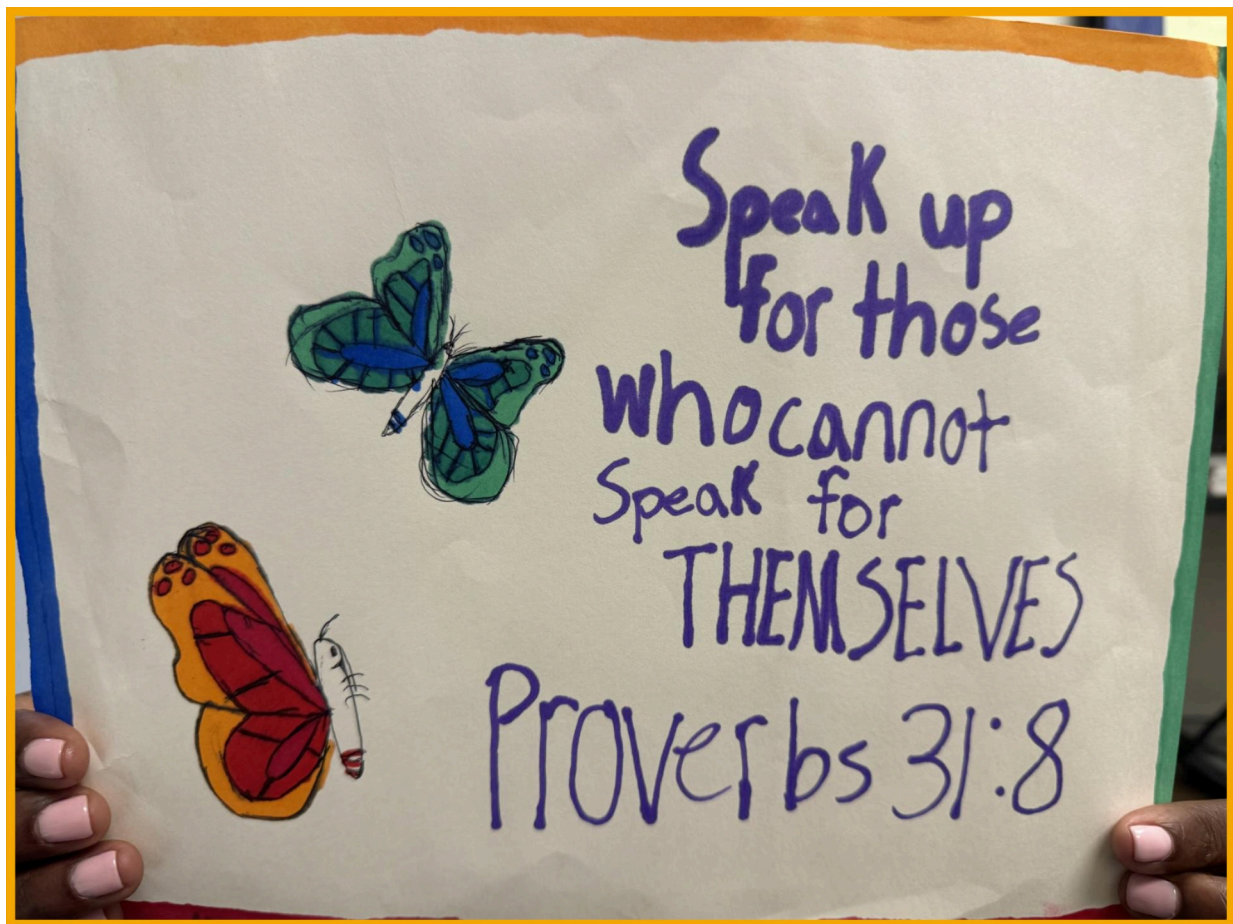 Speak up
for those
who cannot
Speak for
THEMSELVES
Proverbs 31:8